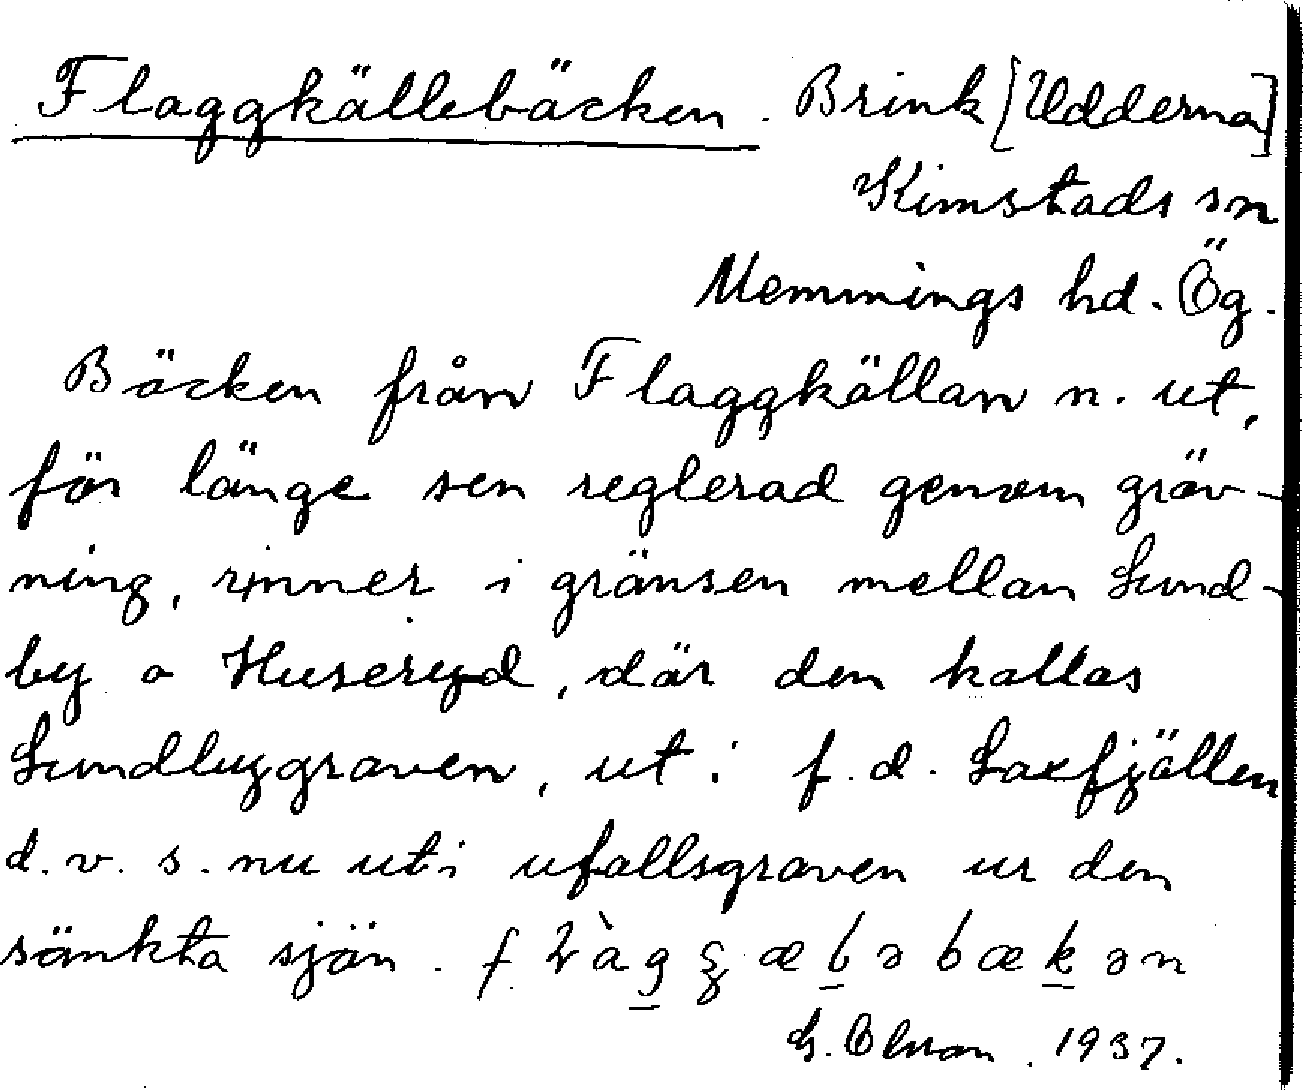 Flaggkällebäcken. Brink [Udderna]
Kimstads sn
Memmings hd. Ög.
Bäcken från Flaggkällan n. ut,
för länge sen reglerad genom gräv-
ning, rinner i gränsen mellan Lund-
by o Huseryd, där den kallas
Lundbygraven, ut i f.d. Laxfjällen
d.v.s. nu uti ufallsgraven ur den
sänkta sjön.
1937.